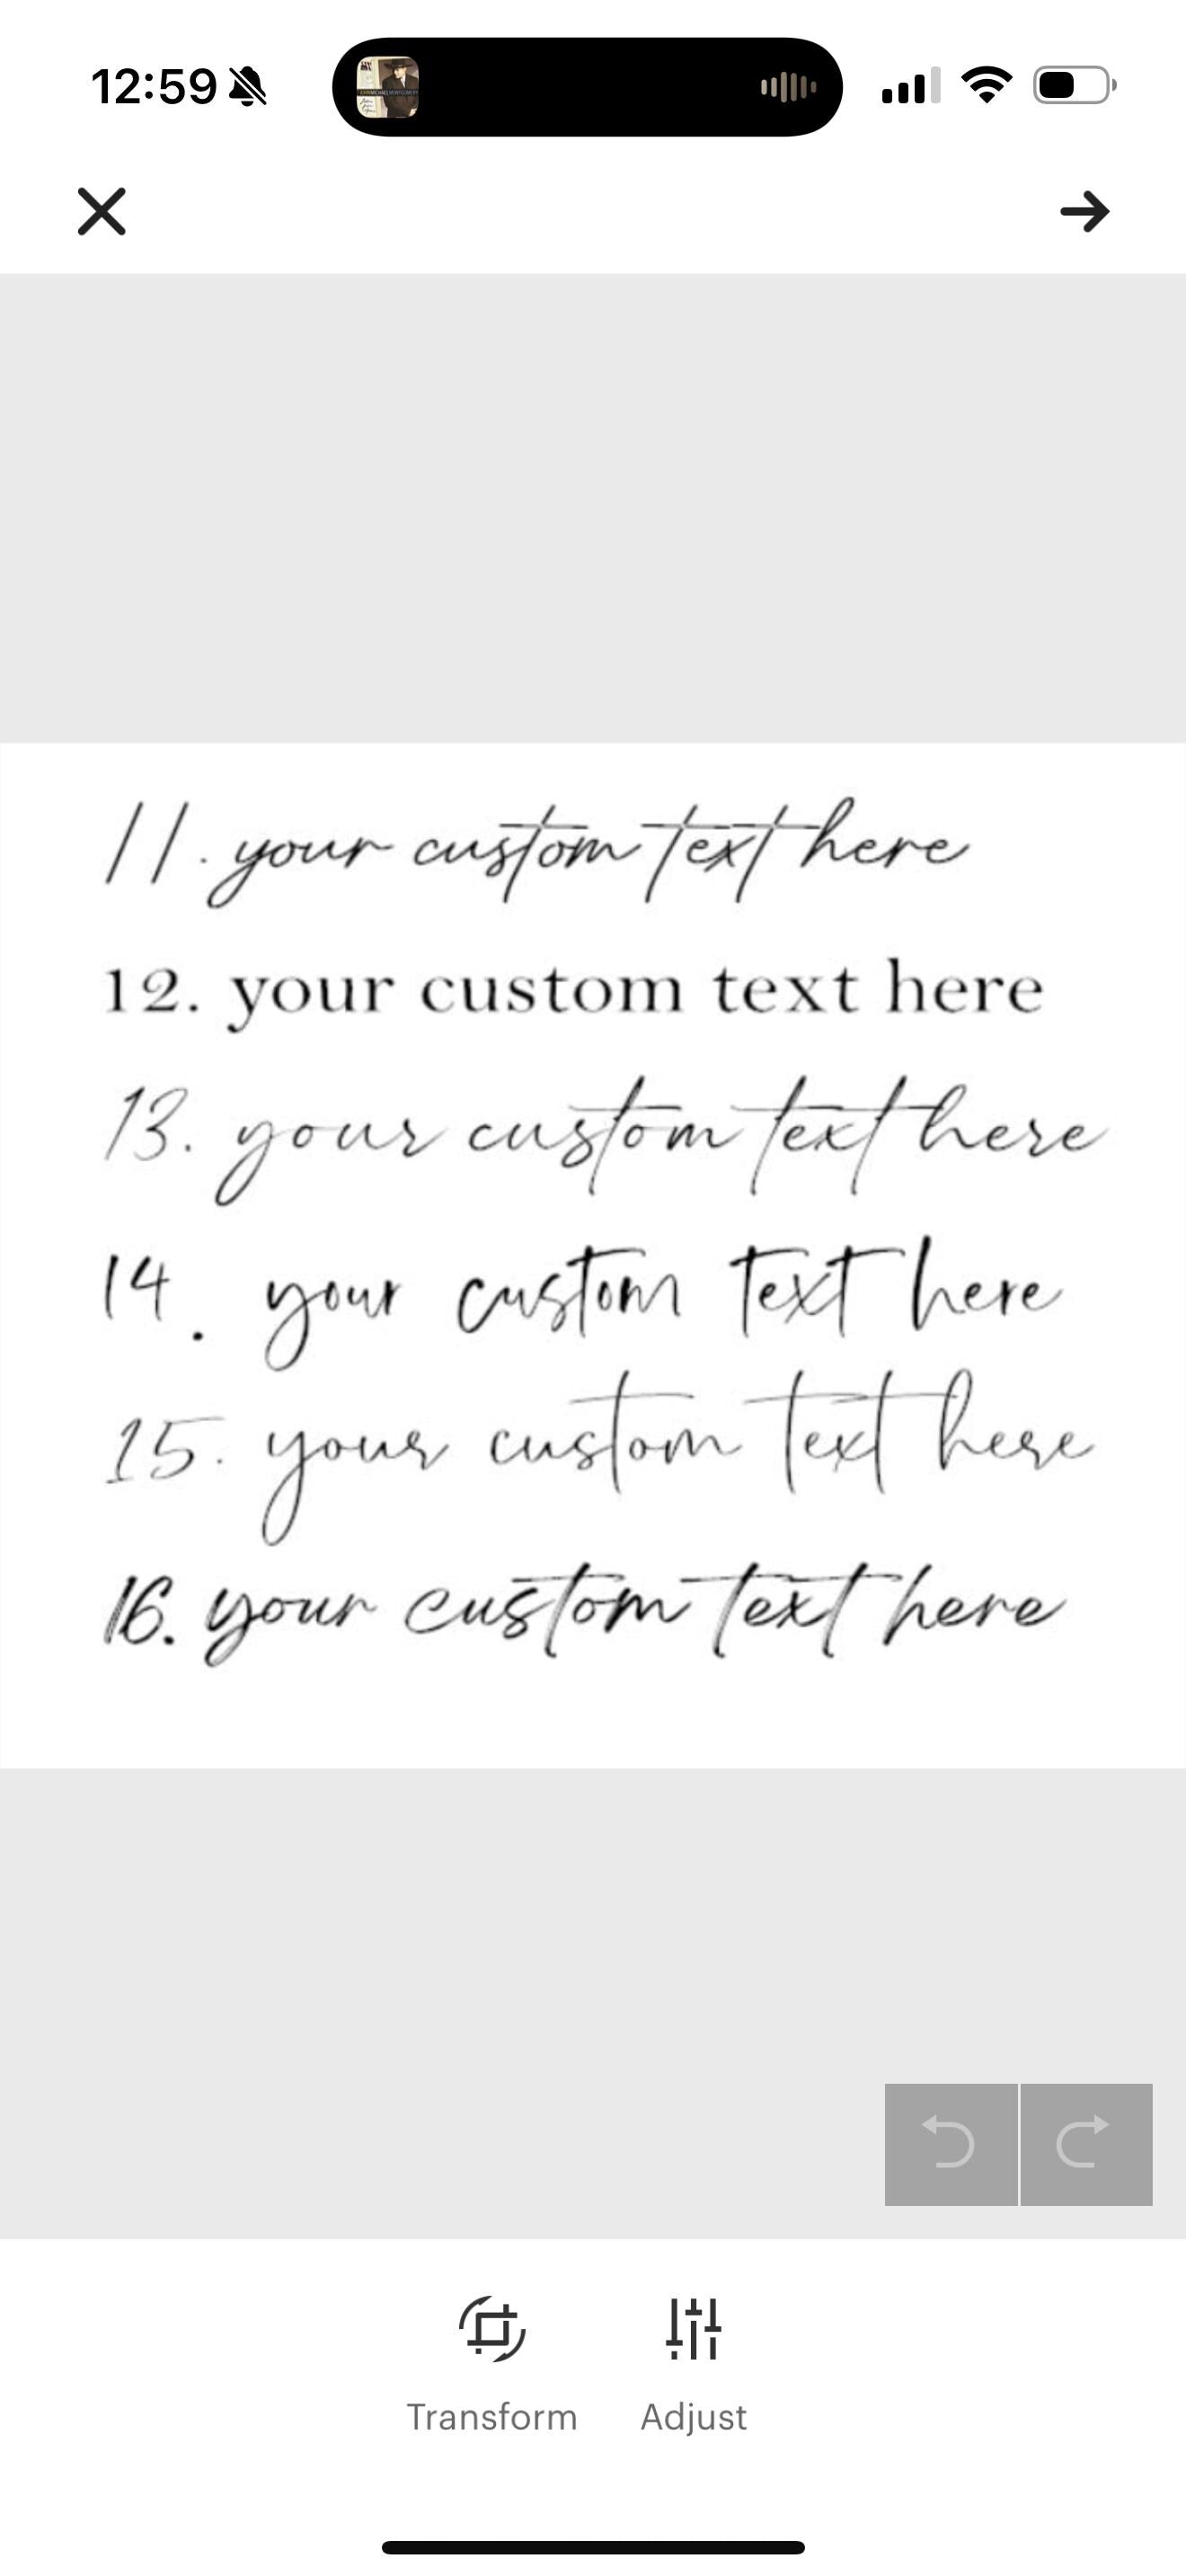 12:59
11. your custom text here
12. your custom text here
13. your custom text here
14. your custom text here
15. your custom text here
16. your custom text here
Transform Adjust